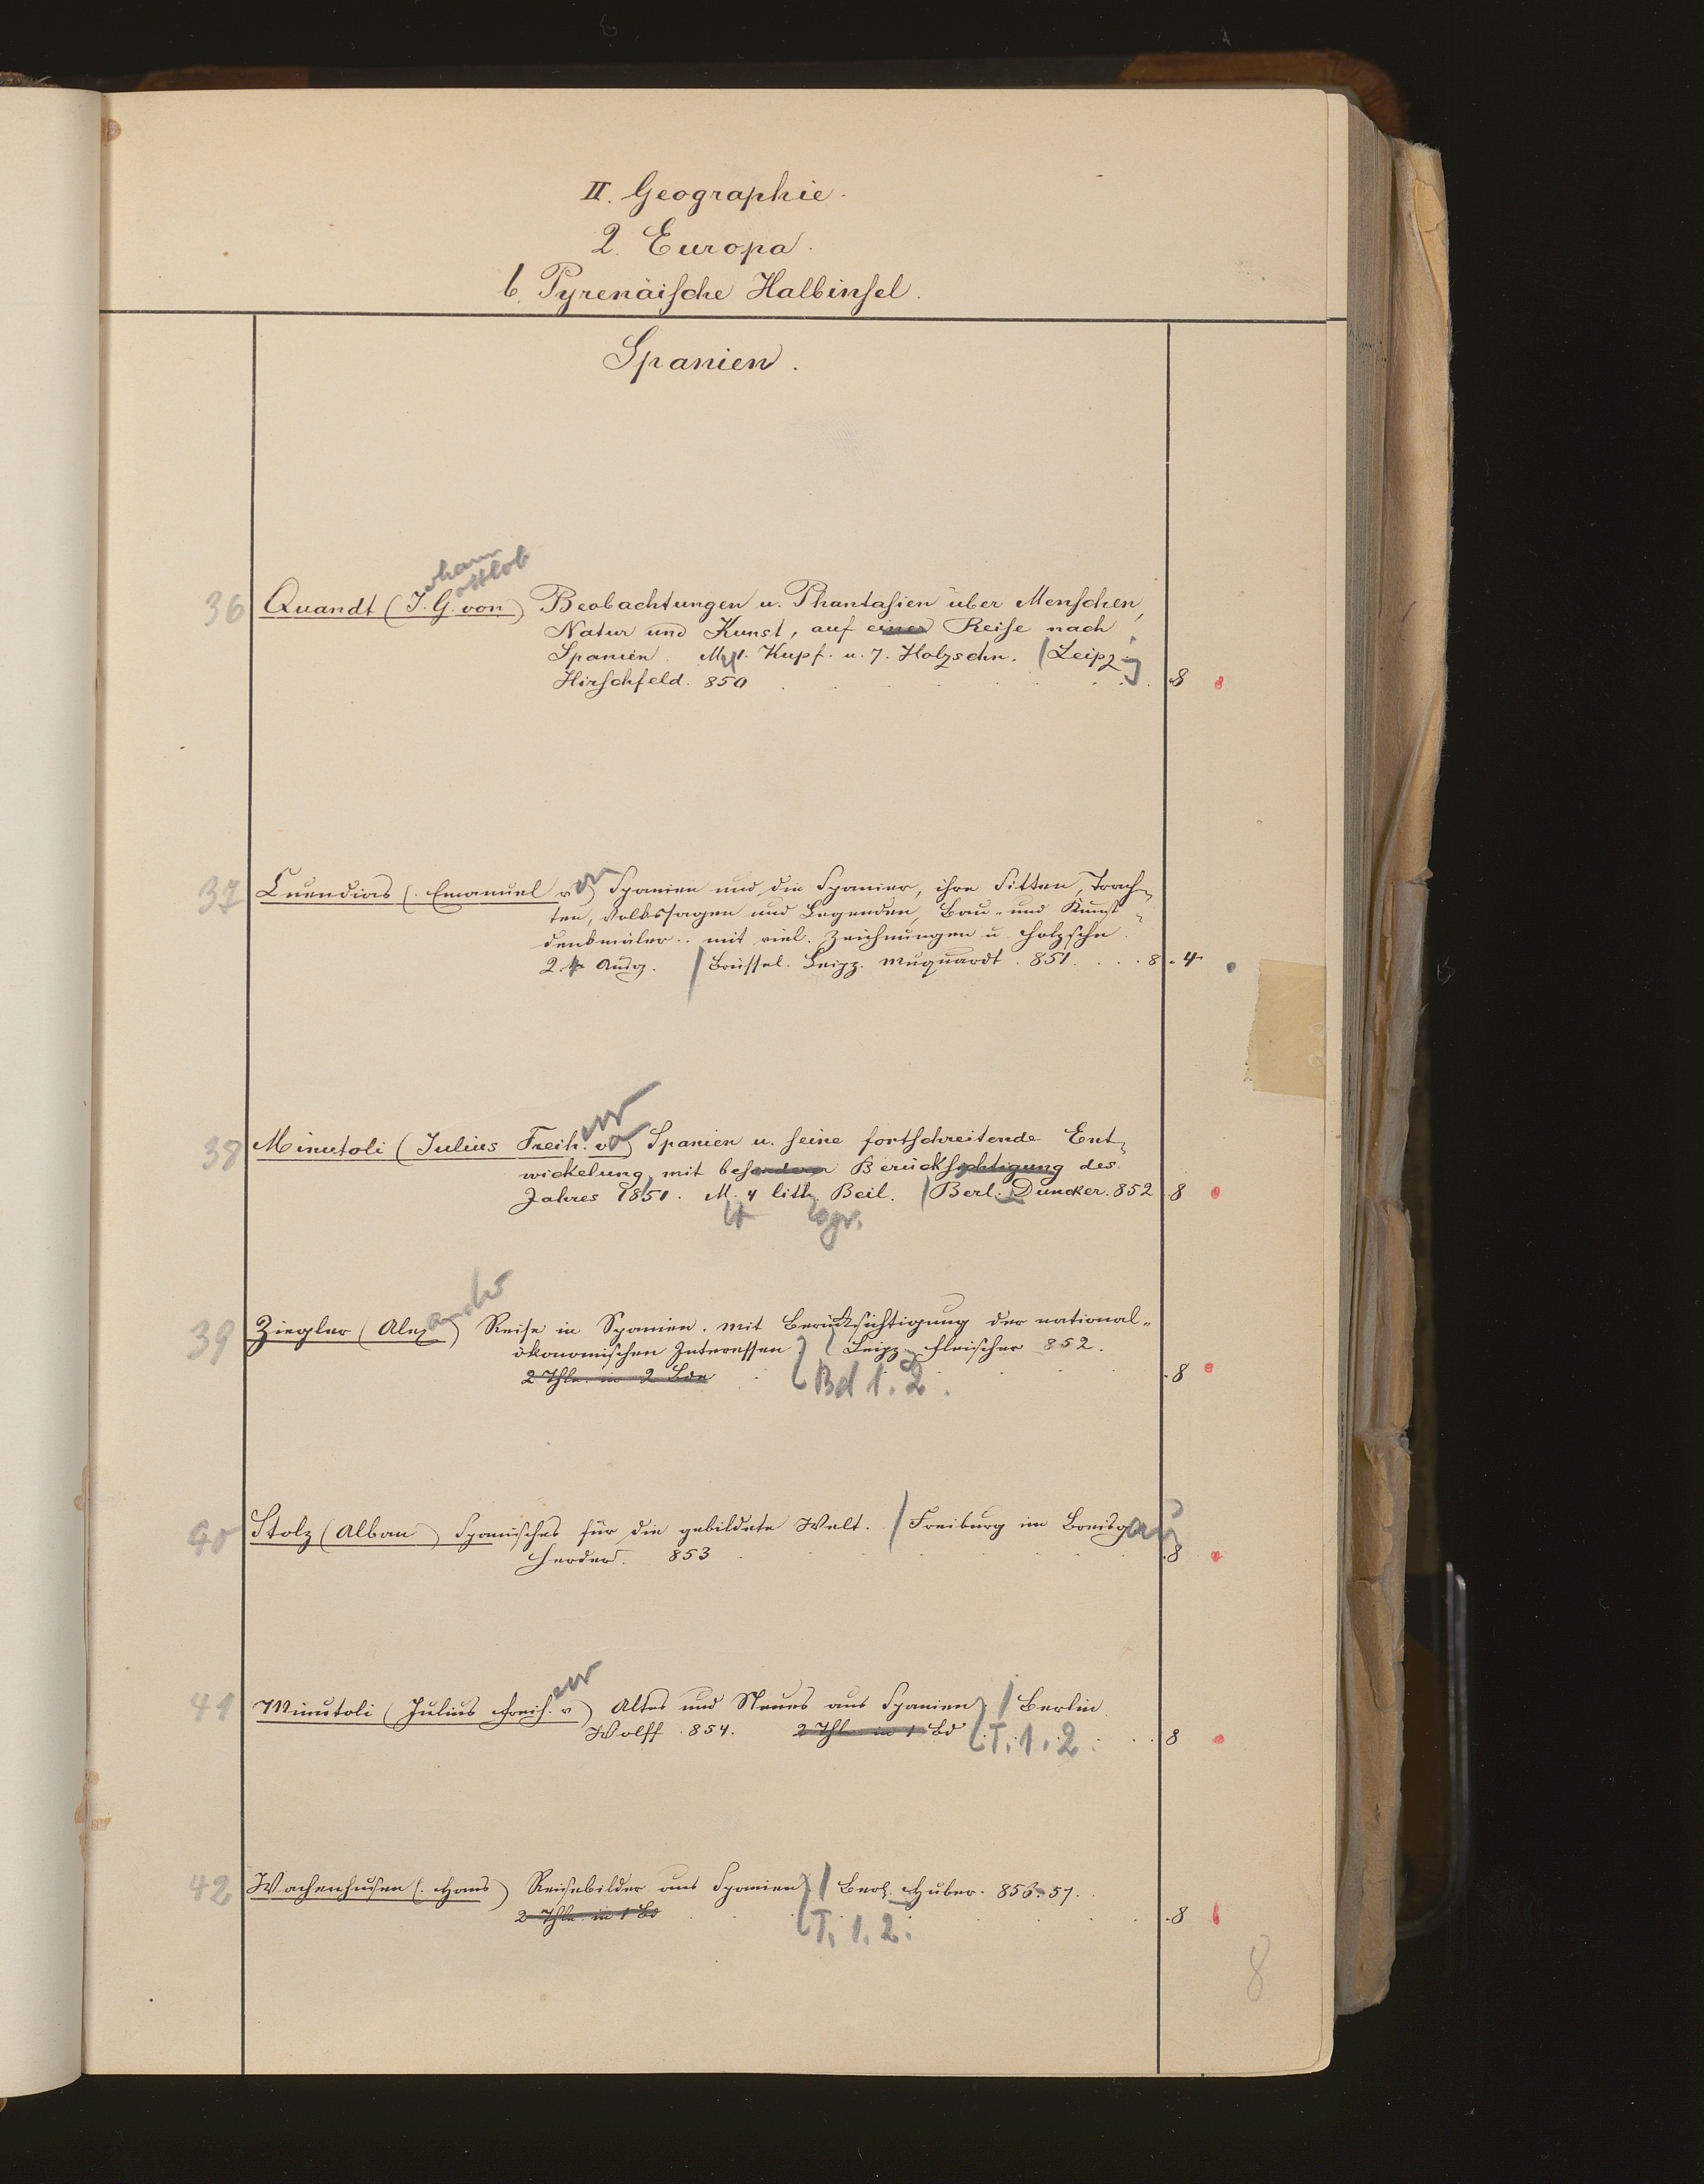 II. Geographie.
2. Europa.
b. Pyrenäische Halbinsel.
Spanien.
ohann
ottlob
36 Quandt (J. G. von) Beobachtungen u. Phantasien über Menschen,
Natur und Kunst, auf einer Reise nach
Spanien. M. 1. Kupf. u. 7. Holzschn. (Leipz.
Hirschfeld. 850 8
37 Cuendias (Emanuel von) Spanien und die Spanier, ihre Sitten, Trach-
ten, Volkssagen und Legenden, Bau- und Kunst-
denkmäler.. mit viel. Zeichnungen u. Holzschn.
2. Ausg. / Brüssel. Leipz. Muquardt. 851. . . . 8. 4
err
38 Minutoli (Julius Freih. von) Spanien u. seine fortschreitende Ent-
wickelung, mit besonderer Berücksichtigung des
Jahres 1851. M. 4 lith. Beil. / Berl. Duncker. 852 8
39 Ziegler (Alexander) Reise in Spanien. Mit Berücksichtigung der national-
ökonomischen Interessen. / Leipz. Fleischer 852.
2 Thle. in 2 Bde Bd 1. 2. 8
40 Stolz (Alban) Spanisches für die gebildete Welt. / Freiburg im Breisgau
Herder. 853 8
err
41 Minutoli (Julius Freih. v) Altes und Neues aus Spanien / Berlin
Wolff. 854. 2 Thl. in 1 Bd T. 1. 2. 8
42 Wachenhusen (Hans) Reisebilder aus Spanien / Berl. Huber. 853-57.
2 Thle. in 1 Bd T. 1. 2. 8
8